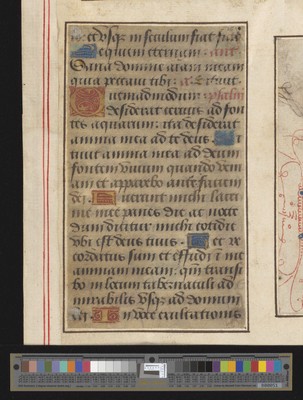 et vsque in seculum fiat
equiem eternam. ant
Sana domine aiam meam
quia peccaui tibi. a Sitiuit.
Quemadmodum psalm
desiderat ceruus ad fon
tes aquarum: ita desiderat
anima mea ad te deus. Si
tiuit anima mea ad deum
fontem viuum quando veni
am et apparebo ante faciem
dei. Fuerunt michi lacri
me mee panes die ac nocte
dum dicitur michi cotidie
vbi est deus tuus. Hec re
cordatus sum et effudi i me
animam meam: qm transi
bo in locum tabernaculi ad
mirabilis vsque ad domum
dei. In voce exultationis